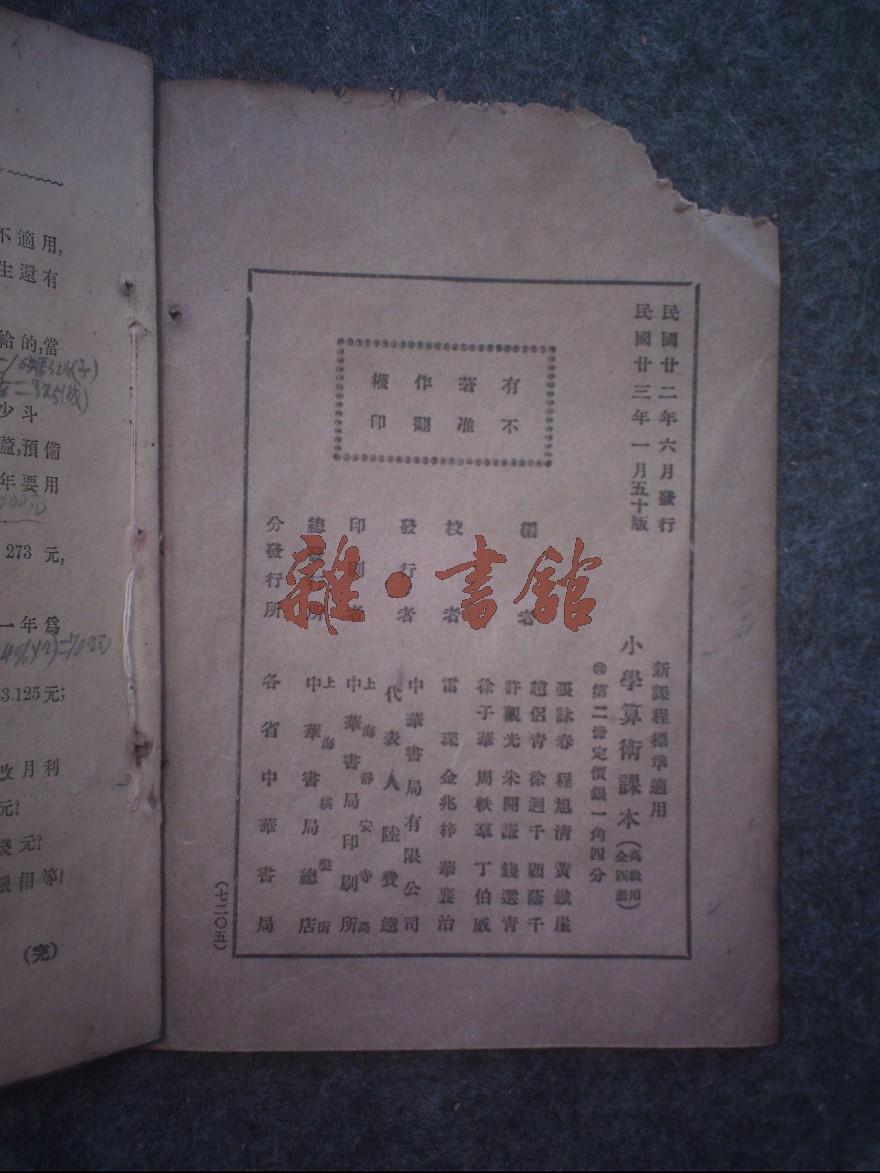 民國廿二年六月發行
民國廿三年一月五十版
有著作權
不准翻印
新課程標準適用
小學算術課本(高級用全四册)
第二冊定價銀一角四分
編者
張詠春 程旭清 黃鐵崖
趙侶青 徐迥千 顧蔭千
許觀光 朱開謙 錢選青
徐子華 周軼羣 丁伯威
校者
雷琛 金兆梓 華襄治
發行者
中華書局有限公司
代表人 陸費逵
印刷者
上海靜安寺路
中華書局印刷所
總發行所
上海棋盤街
中華書局總店
分發行所
各省中華書局
(七二〇五)
雜·書館
不適用,
生還有
給的,當
少斗
預備
年要用
273 元,
一年爲
3.125元;
改月利
元?
幾元?
相等?
(完)